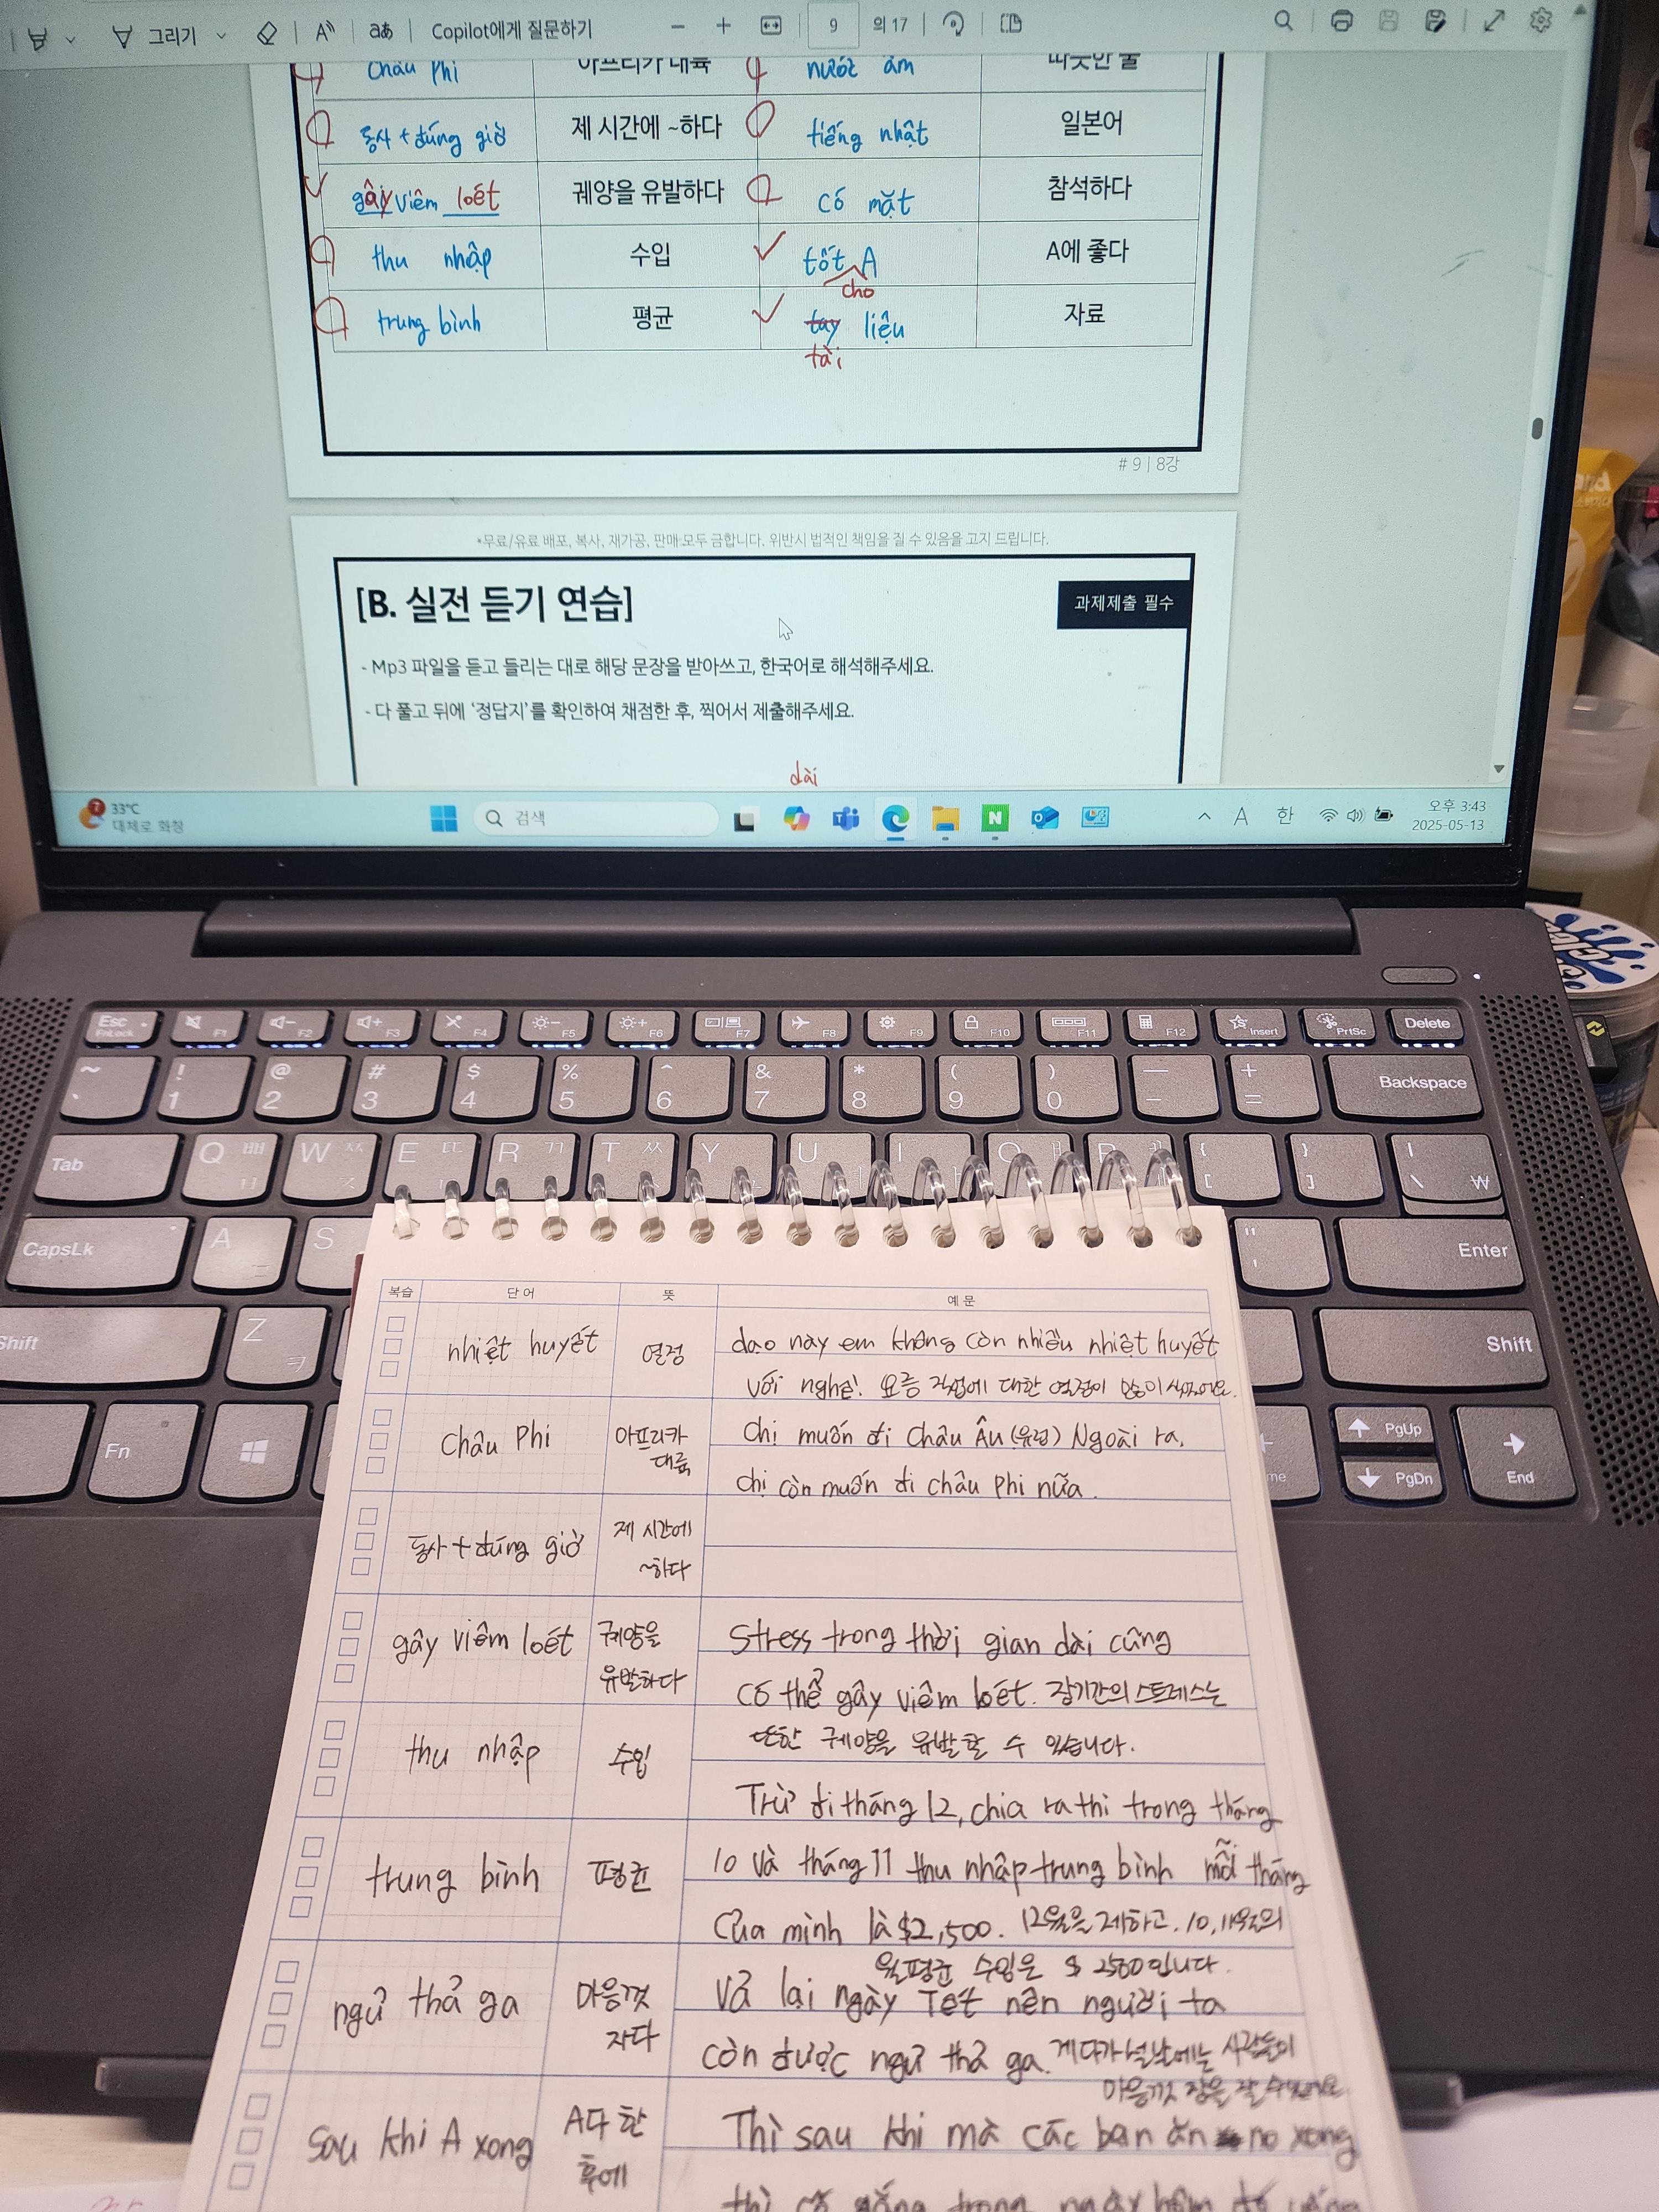 그리기 Copilot에게 질문하기 9 의 17
Châu Phi 아프리카 대륙 nước ấm 따뜻한 물
동사 + đúng giờ 제 시간에 ~하다 tiếng nhật 일본어
gây viêm loét 궤양을 유발하다 có mặt 참석하다
thu nhập 수입 tốt A A에 좋다
cho
trung bình 평균 tay liệu 자료
tài
# 9 | 8강
*무료/유료 배포, 복사, 재가공, 판매 모두 금합니다. 위반시 법적인 책임을 질 수 있음을 고지 드립니다.
[B. 실전 듣기 연습] 과제제출 필수
- Mp3 파일을 듣고 들리는 대로 해당 문장을 받아쓰고, 한국어로 해석해주세요.
- 다 풀고 뒤에 '정답지'를 확인하여 채점한 후, 찍어서 제출해주세요.
dài
33°C
대체로 화창
검색
A 한
오후 3:43
2025-05-13
Esc F1 F2 F3 F4 F5 F6 F7 F8 F9 F10 F11 F12 Insert PrtSc Delete
FnLock
~ ! @ # $ % ^ & * ( ) — + Backspace
` 1 2 3 4 5 6 7 8 9 0 - =
Tab Q ㅃ W ㅉ E ㄸ R ㄲ T ㅆ Y U I O P { } |
[ ] \ ₩
CapsLk A S " Enter
'
Shift Z Shift
ㅋ
Fn PgUp
PgDn End
복습 단어 뜻 예문
nhiệt huyết 열정 dạo này em không còn nhiều nhiệt huyết
với nghề! 요즘 직업에 대한 열정이 많이
Châu Phi 아프리카 대륙 Chị muốn đi Châu Âu (유럽) Ngoài ra,
chị còn muốn đi châu Phi nữa.
동사 + đúng giờ 제 시간에 ~하다
gây viêm loét 궤양을 유발하다 Stress trong thời gian dài cũng
có thể gây viêm loét. 장기간의 스트레스는
또한 궤양을 유발할 수 있습니다.
thu nhập 수입
Trừ đi tháng 12, chia ra thì trong tháng
trung bình 평균 10 và tháng 11 thu nhập trung bình mỗi tháng
của mình là $2,500. 12월을 제하고. 10, 11월의
월평균 수입은 $ 2500입니다.
ngủ thả ga 마음껏 자다 Vả lại ngày Tết nên người ta
còn được ngủ thả ga. 게다가 설날에는 사람들이
마음껏 잠을 잘 수
sau khi A xong A다 한 후에 Thì sau khi mà các bạn ăn no xong
thì cố gắng trong ngày hôm đó uống